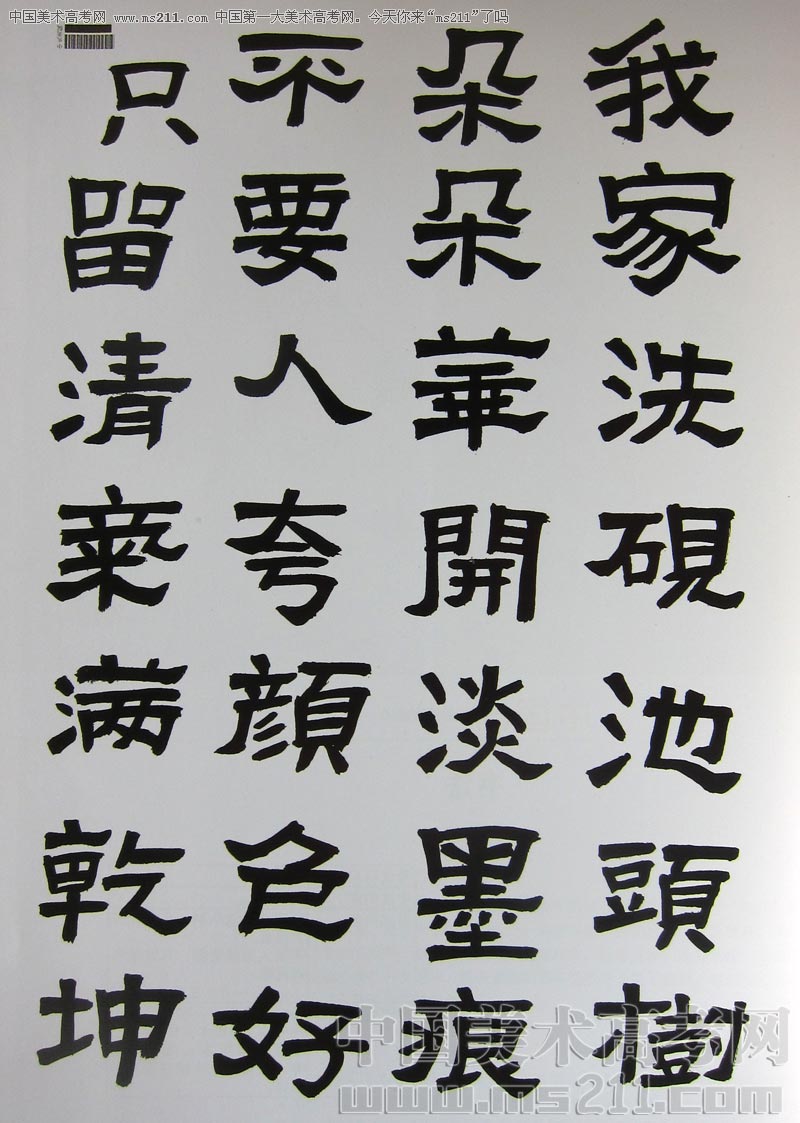 中国美术高考网 - www.ms211.com 中国第一大美术高考网。今天你来“ms211”了吗
我家洗硯池頭樹
朵朵華開淡墨痕
不要人夸顔色好
只留清氣满乾坤
中国美术高考网
www.ms211.com